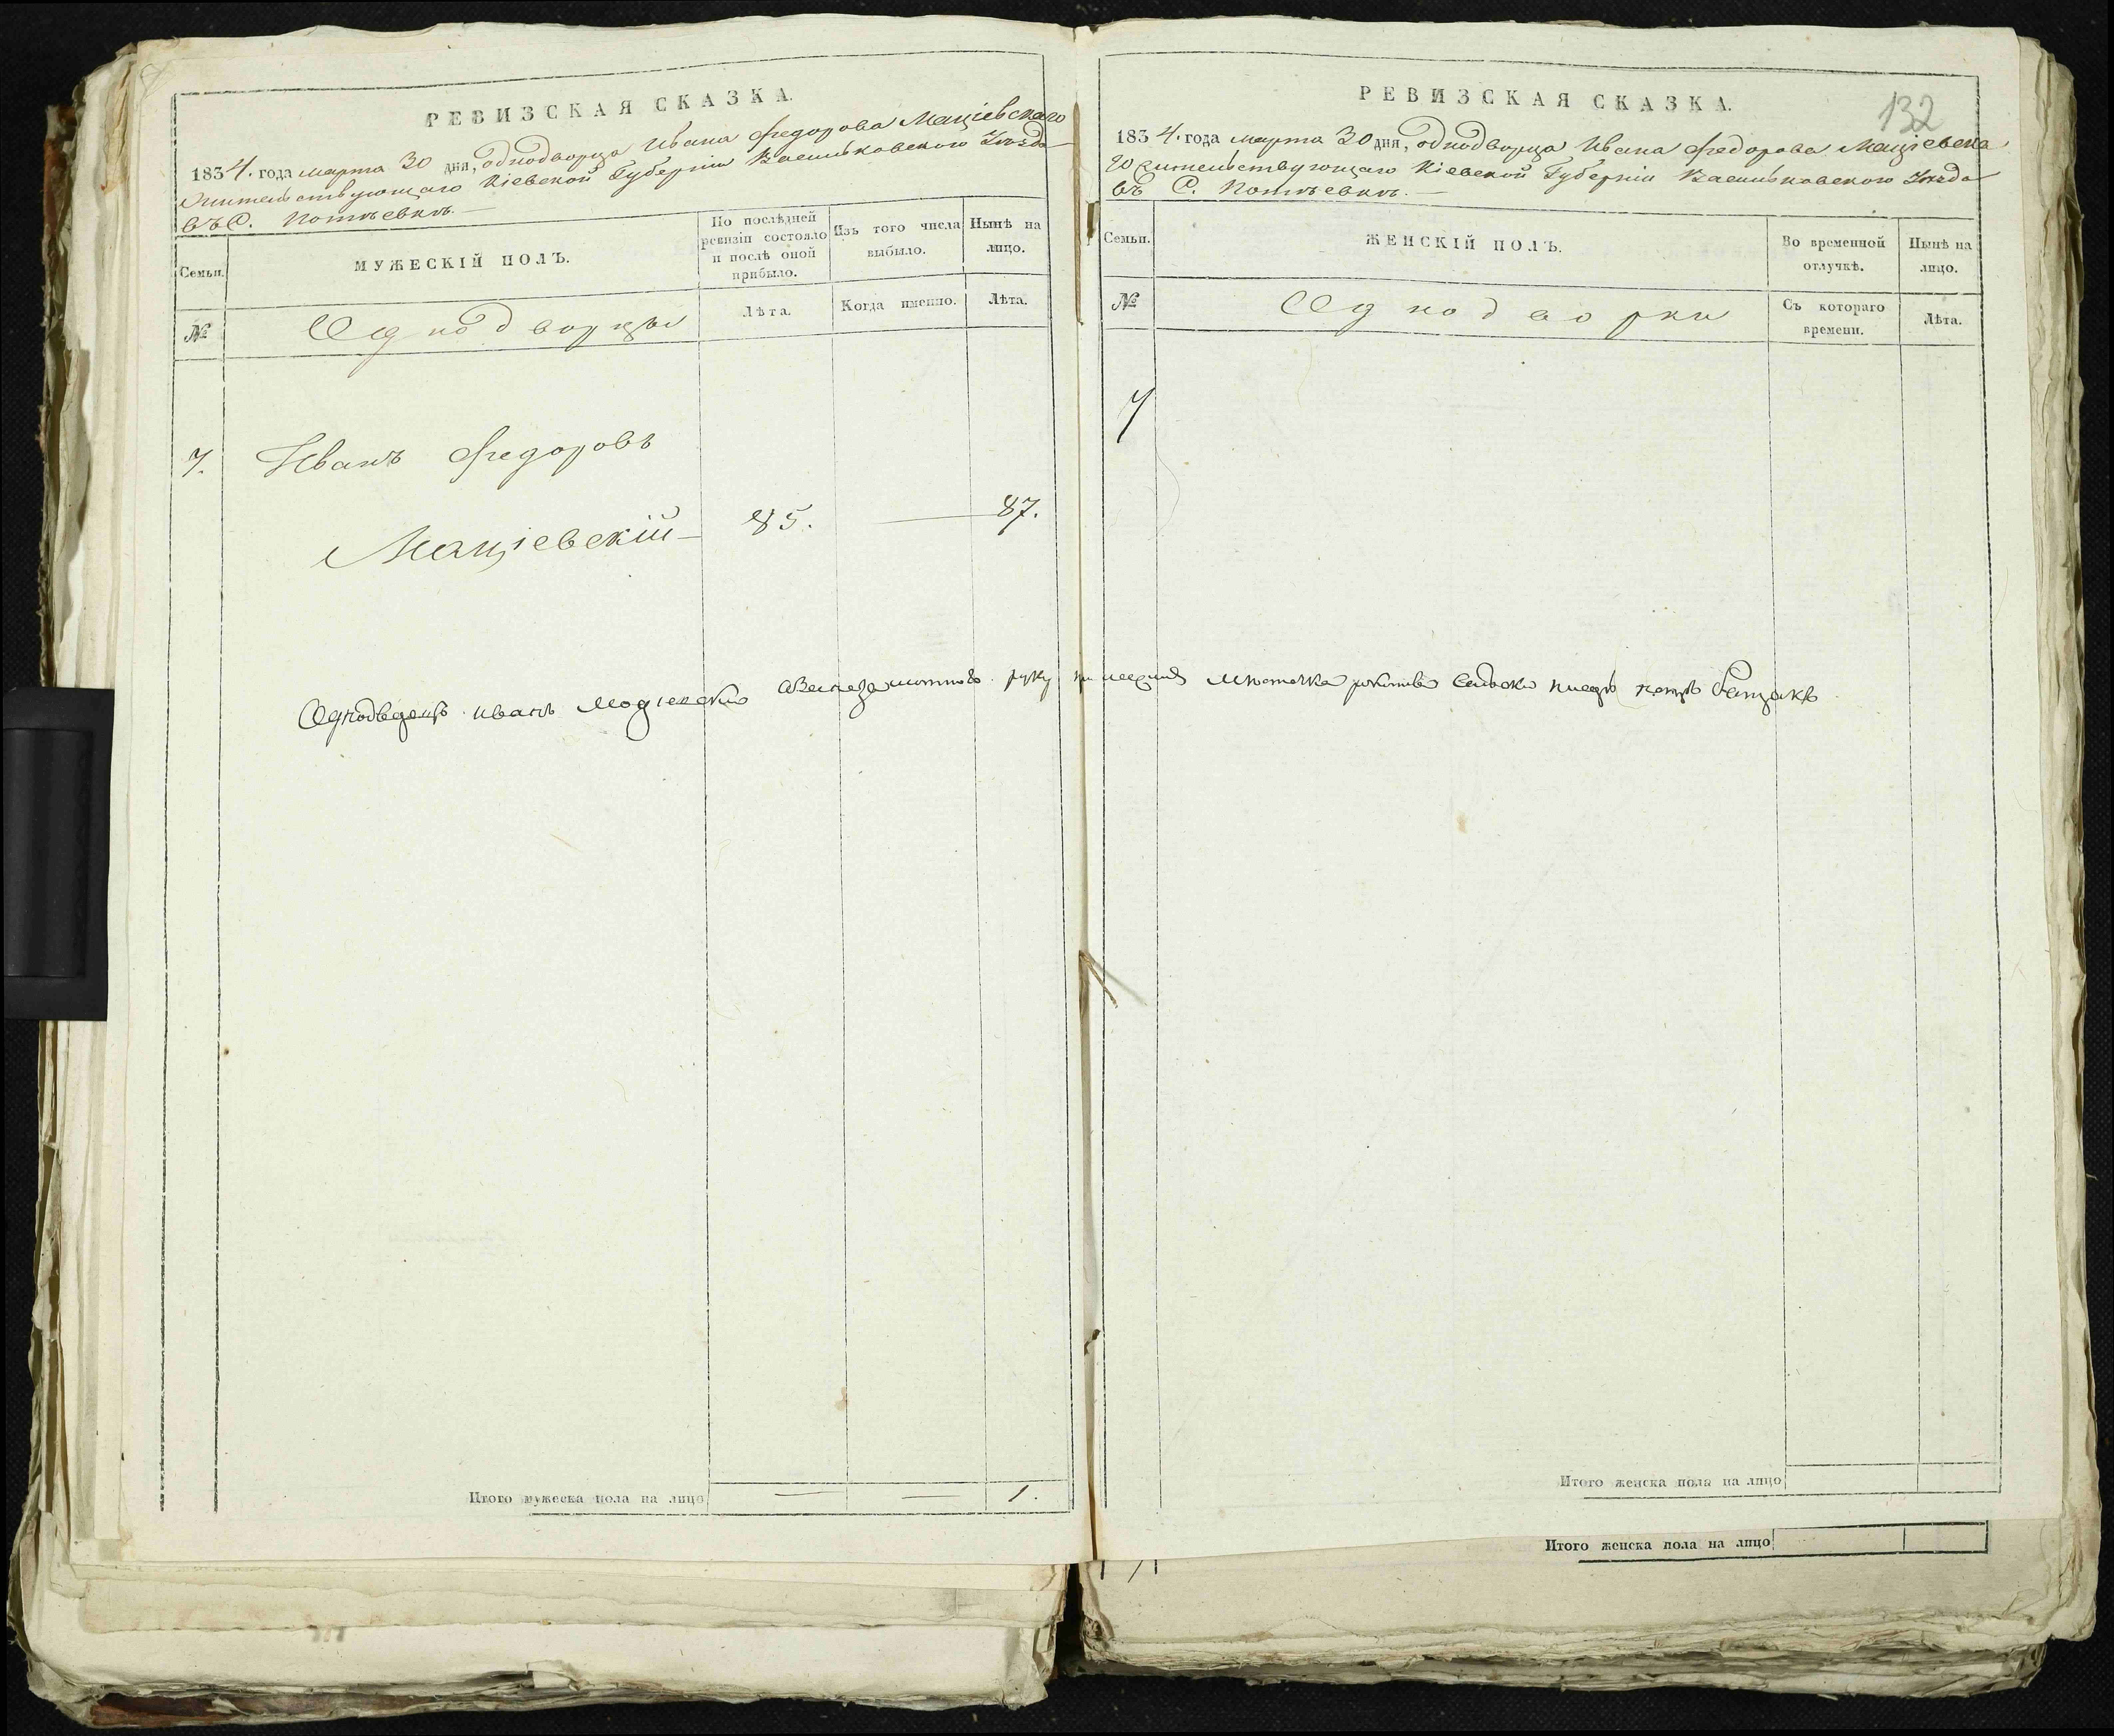 РЕВИЗСКАЯ СКАЗКА.
1834. года марта 30 дня, однодворца Ивана Федорова Маціевскаго
жительствующаго Кіевской Губерніи Васильковскаго Уѣзда
въ С. Потѣевкѣ.—
Семьи.
МУЖЕСКІЙ ПОЛЪ.
По послѣдней ревизіи состояло и послѣ оной прибыло.
Изъ того числа выбыло.
Нынѣ на лицо.
№
Однодворцы
Лѣта.
Когда именно.
Лѣта.
7. Иванъ Федоровъ
Маціевскій— 85. — 87.
Однодвдецъ иванъ руку
Итого мужеска пола на лицо — — 1.
РЕВИЗСКАЯ СКАЗКА.
132
1834. года марта 30 дня, однодворца Ивана Федорова Маціевска
го жительствующаго Кіевской Губерніи Васильковскаго Уѣзда
въ С. Потѣевкѣ.—
Семьи.
ЖЕНСКІЙ ПОЛЪ.
Во временной отлучкѣ.
Нынѣ на лицо.
№
Однодворки
Съ котораго времени.
Лѣта.
7
Итого женска пола на лицо
Итого женска пола на лицо